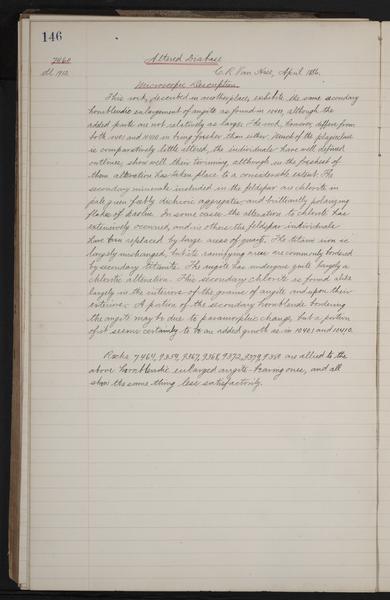 146
7460 Altered Diabase
Sl. 1912. C. R. Van Hise, April 1886.
Microscopic Description.
This rock, described in another place, exhibits the same secondary
hornblendic enlargement of augite as found in 10401, although the
added parts are not relatively as large. The rock, however, differs from
both 10401 and 10410 in being fresher than either. Much of the plagioclase
is comparatively little altered, the individuals have well defined
outlines, show well their twinning, although in the freshest of
them alteration has taken place to a considerable extent. The
secondary minerals included in the feldspar are chlorite in
pale green feebly dichroic aggregates and brilliantly polarizing
flakes of sericite. In some cases the alteration to chlorite has
extensively occurred, and in others the feldspar individuals
have been replaced by large areas of quartz. The titanic iron is
largely unchanged, but its ramifying areas are commonly bordered
by secondary titanite. The augite has undergone quite largely a
chloritic alteration. This secondary chlorite is found alike
largely in the interiors of the grains of augite and upon their
exteriors. A portion of the secondary hornblende bordering
the augite may be due to paramorphic change, but a portion
of it seems certainly to be an added growth as in 10401 and 10410.
Rocks 7464, 9354, 9367, 9368, 9372, 9379, 9380 are allied to the
above hornblendic enlarged augite-bearing ones, and all
show the same thing less satisfactorily.